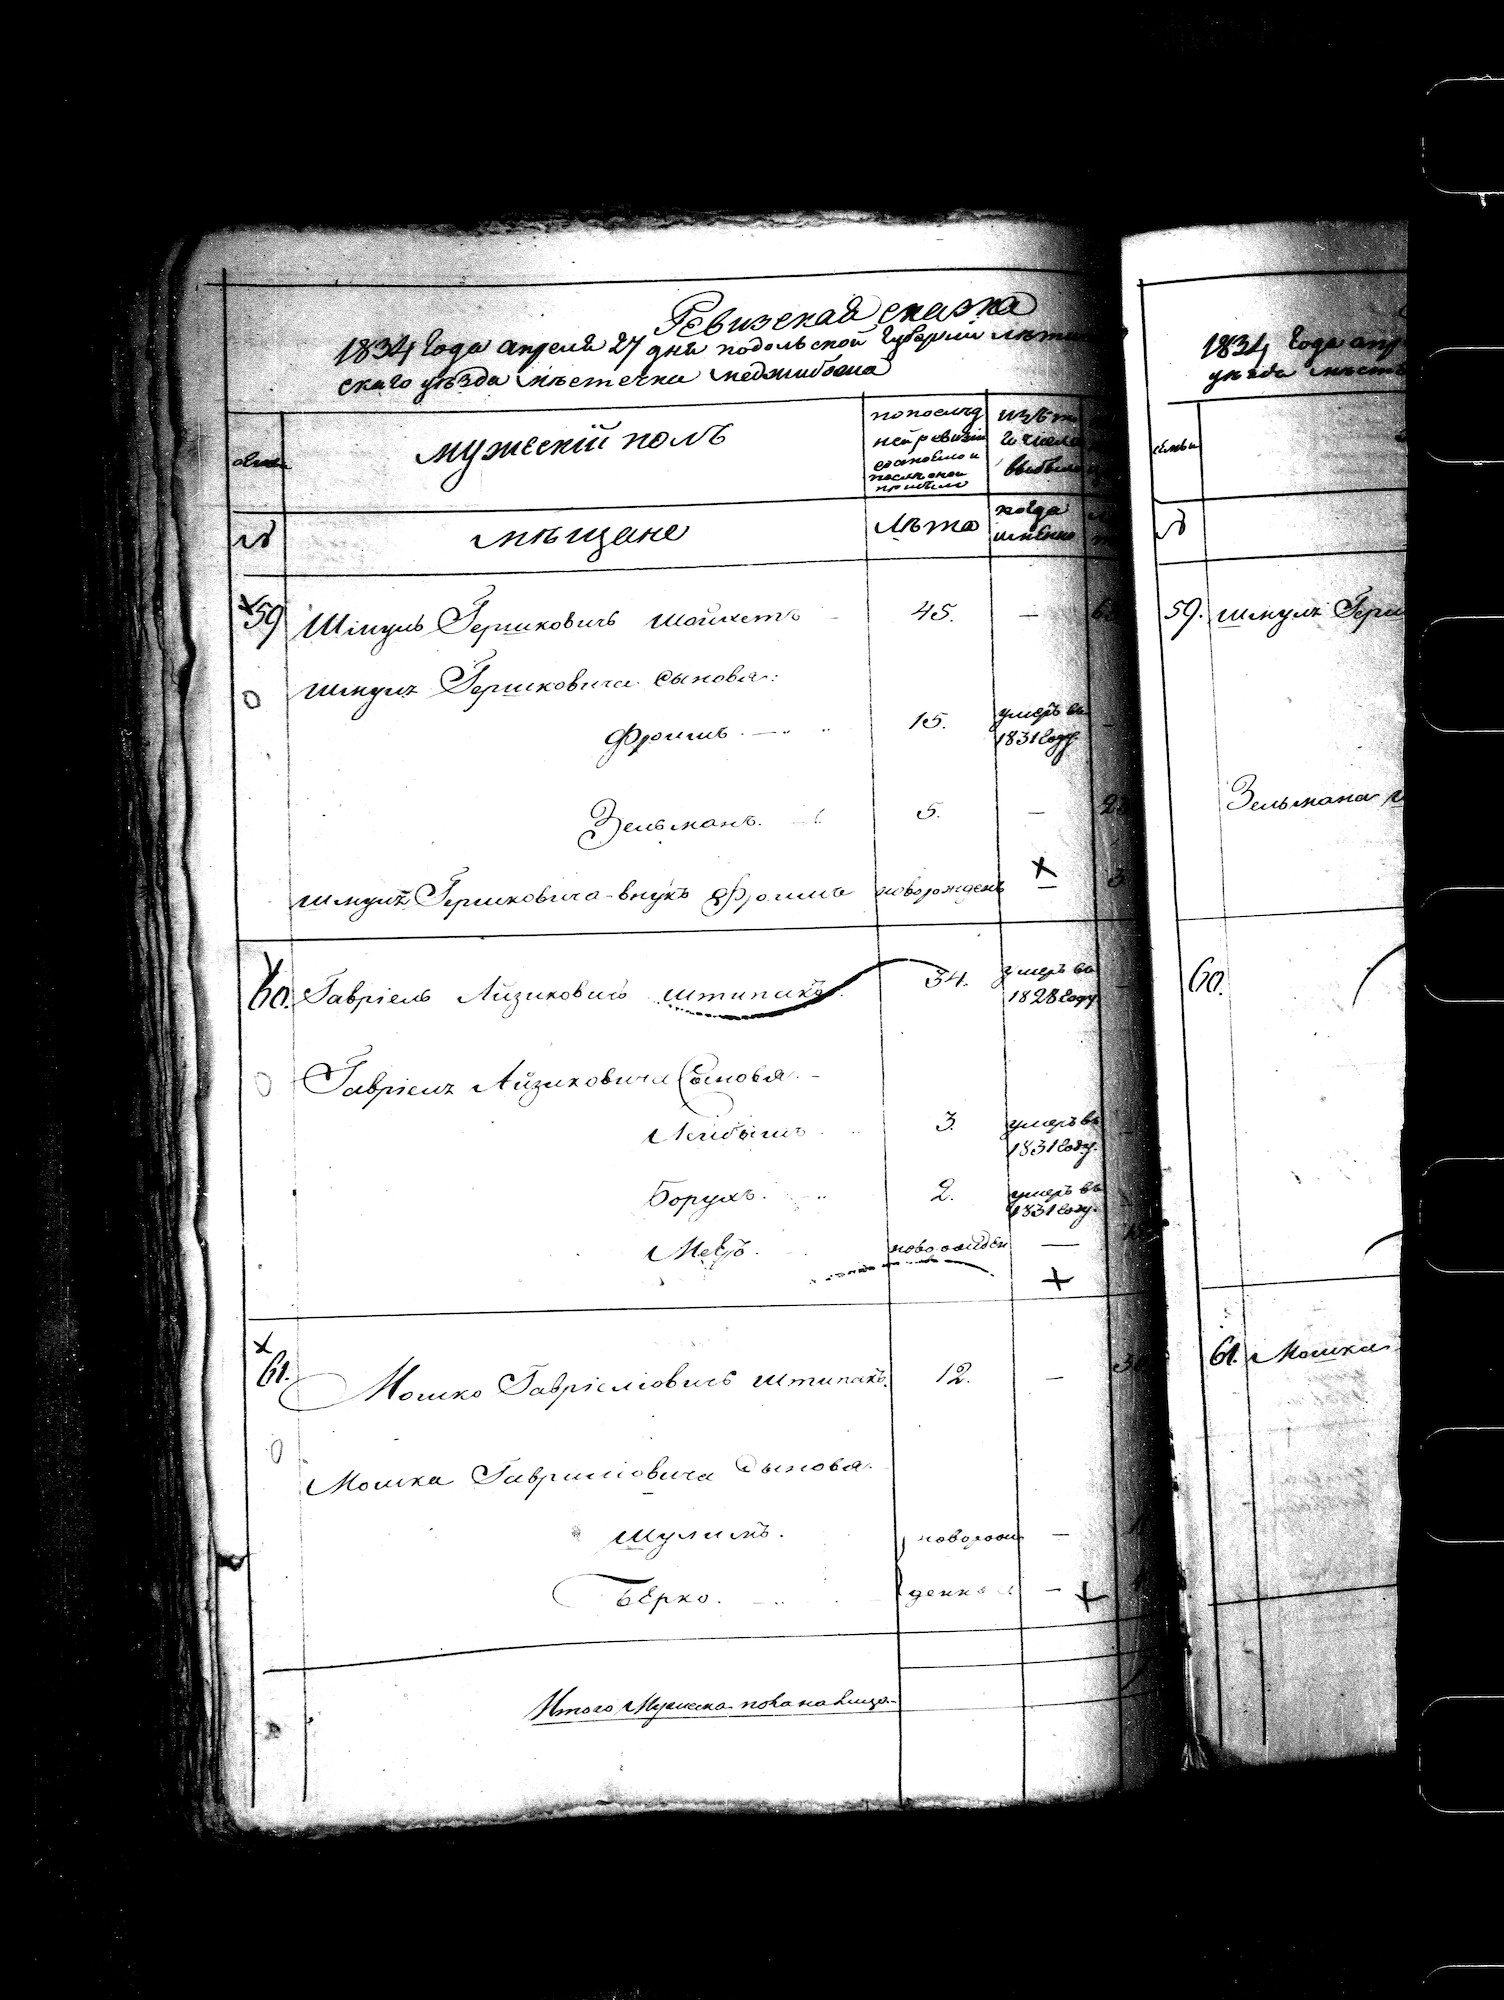 Ревизская сказка
1834 года апреля 27 дня подольской губерніи
скаго уѣзда мѣстечка меджибожа
мужескій полъ
по послѣд
ней ревизіи
состояло и
послѣ оной
прибыло
изъ то
го числа
выбыло
№
мѣщане
лѣта
когда
имянно
59 Шмуль Гершковичъ шойхетъ 45. —
Шмуля Гершковича сыновья:
Фроимъ 15. умеръ въ
1831 году
Зельманъ. 5. —
Шмуля Гершковича внукъ Фроимъ новорожденъ —
60. Гавріель Айзиковичъ штипакъ. 34. умеръ въ
1828 году
Гавріеля Айзиковича Сыновья.
Лейбышъ 3. умеръ въ
1831 году.
Борухъ. 2. умеръ въ
1831 году.
Мееръ. —
61. Мошко Гавріеліовичъ штипакъ. 12. —
Мошка Гавриліовича Сыновья.
Шулимъ. новорож —
Берко. денныя —
Итого Мужеска пола на лицо
1834 года апр
уѣзда мѣст
семьи
№
59. Шмуля Герш
Зельмана
60.
61. Мошка